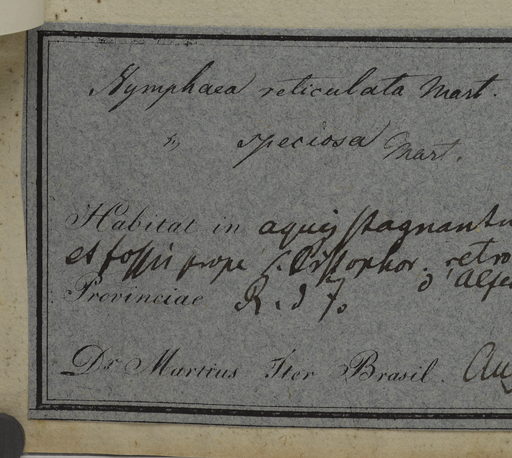 Nymphaea reticulata Mart.
" speciosa Mart.
Habitat in aquis stagnantu
et fossis prope S. Cristophor. retro
d'Alfe
Provinciae R. d J.
Dr. Martius Iter Brasil. Aug